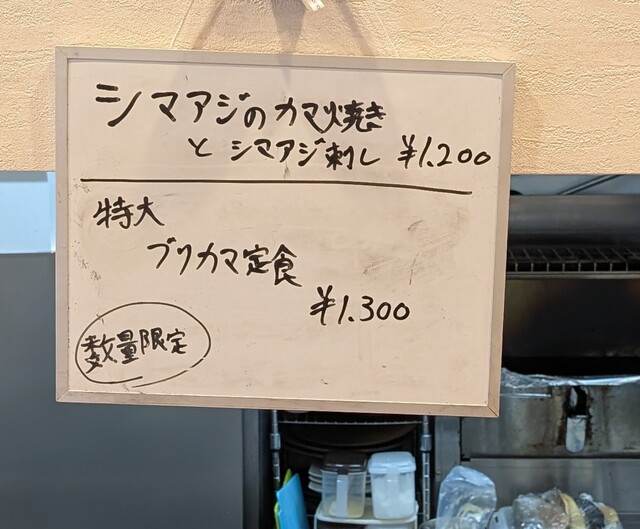 シマアジのカマ焼き
とシマアジ刺し ¥1.200
特大
ブリカマ定食
¥1.300
数量限定